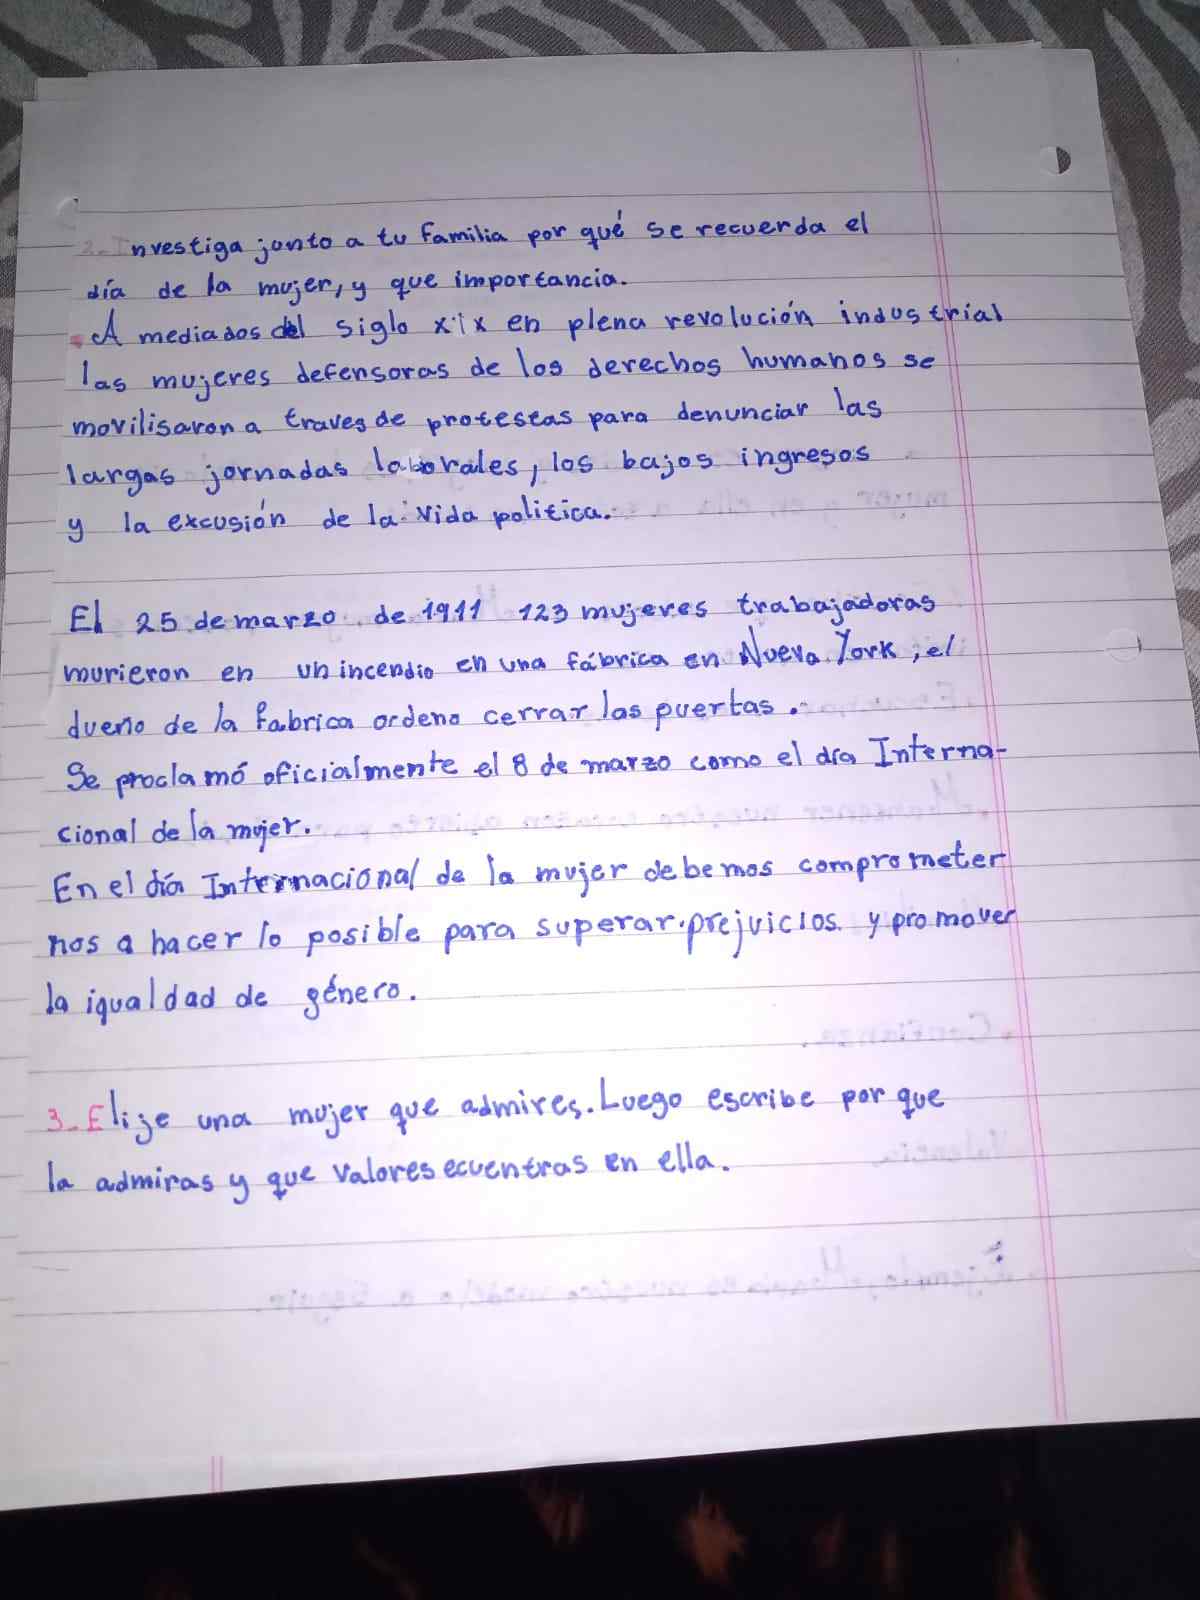 2-Investiga junto a tu familia por qué se recuerda el
día de la mujer, y que importancia.
A mediados del siglo xix en plena revolución industrial
las mujeres defensoras de los derechos humanos se
movilisaron a traves de protestas para denunciar las
largas jornadas laborales, los bajos ingresos
y la excusión de la vida politica.
El 25 de marzo de 1911 123 mujeres trabajadoras
murieron en un incendio en una fábrica en Nueva York, el
dueño de la fabrica ordeno cerrar las puertas.
Se proclamó oficialmente el 8 de marzo como el día Interna-
cional de la mujer.
En el día Internacional de la mujer debemos comprometer
nos a hacer lo posible para superar prejuicios y promover
la igualdad de género.
3-Elije una mujer que admires. Luego escribe por que
la admiras y que valores ecuentras en ella.